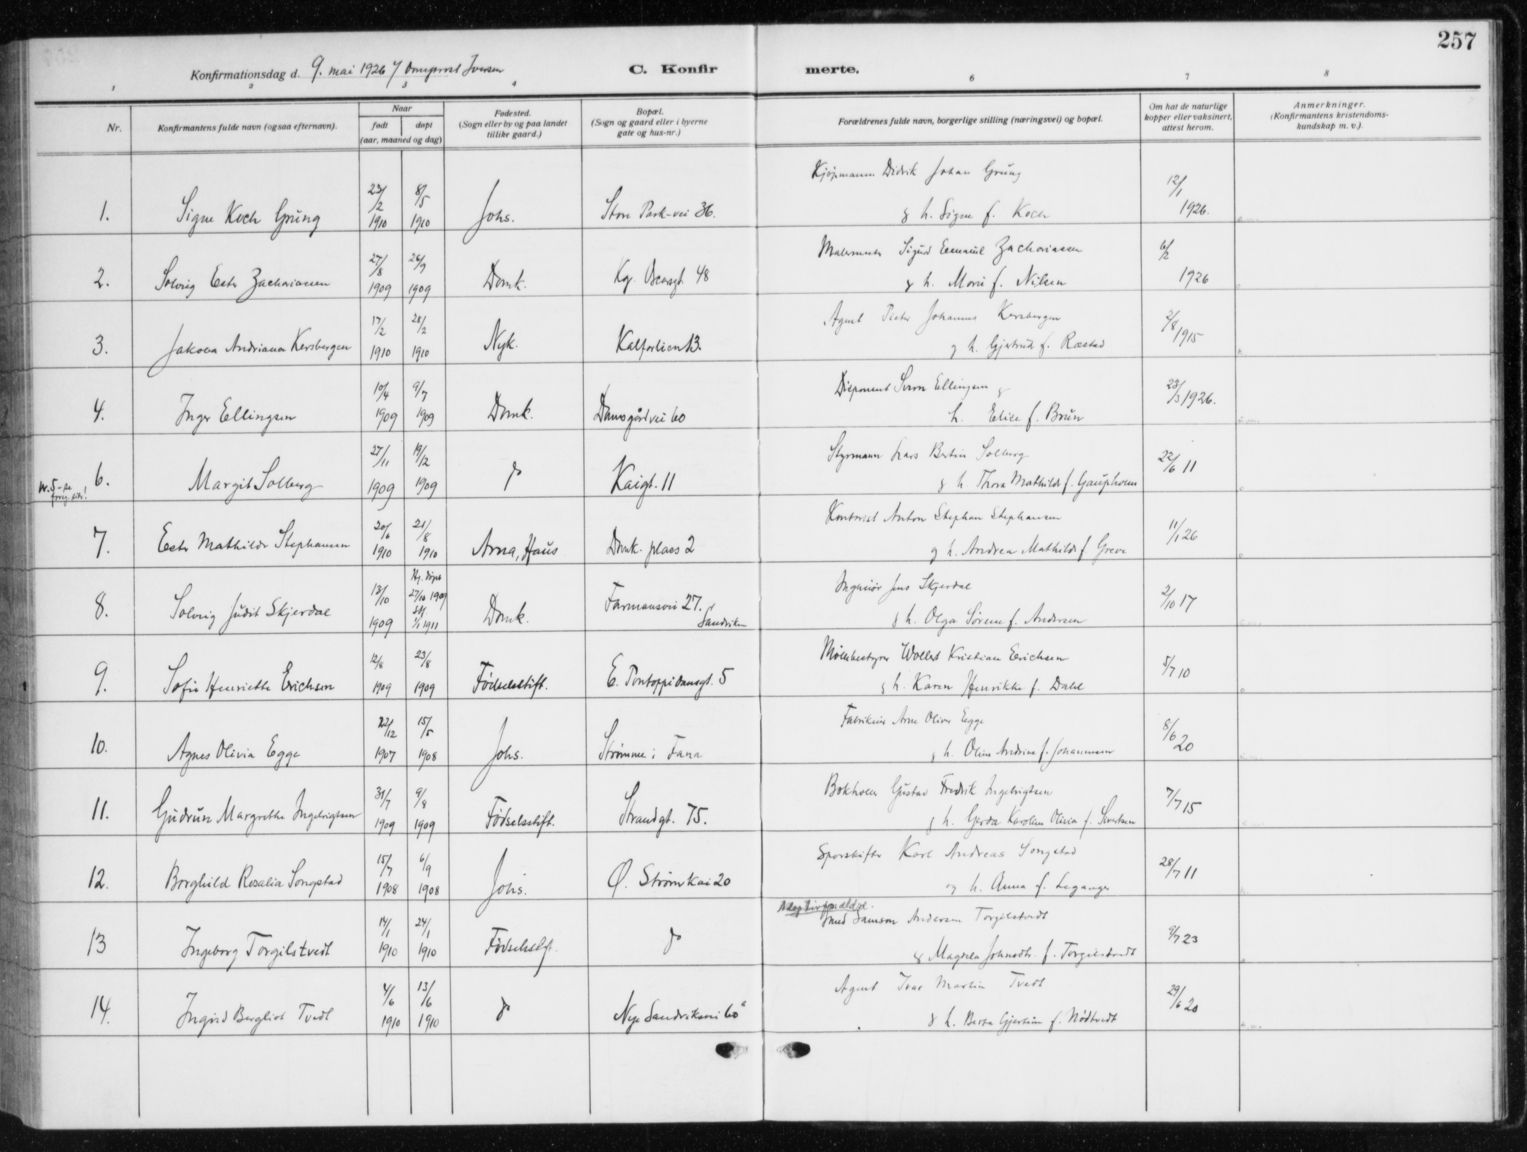 257
Konfirmationsdag d. 9. mai 1926 C. Konfirmerte.
1 2 3 4 6 7 8
Nr. Konfirmantens fulde navn (ogsaa efternavn). Naar født døpt (aar, maaned og dag) Fødested. (Sogn eller by og paa landet tillike gaard.) Bopæl. (Sogn og gaard eller i byerne gate og hus-nr.) Forældrenes fulde navn, borgerlige stilling (næringsvei) og bopæl. Om hat de naturlige kopper eller vaksinert, attest herom. Anmerkninger. (Konfirmantens kristendoms-kundskap m. v.).
1. Signe Koch Grüng 23/2 1910 8/5 1910 Johs. Store Park-vei 36. Kjøpmann Didrik Johan Grüng
& h. Signe f. Koch 12/1 1926.
2. Solveig Ester Zachariassen 27/8 1909 26/9 1909 Domk. Kg. Oscarsgt. 48 Sigurd Emanuel Zachariassen
& h. Marie f. Nilsen 6/2 1926
3. Jakoba Andriana Kersbergen 17/2 1910 28/2 1910 Nyk. Kalfarlien 13. Agent Pieter Johannes Kersbergen
& h. Gjertrud f. Røstad 2/8 1915
4. Inger Ellingsen 10/4 1909 9/7 1909 Domk. Damsgårdvei 60 Disponent Sverre Ellingsen &
h. Elise f. Brün 23/3 1926.
nr. 5 - se forrige side!
6. Margit Solberg 27/11 1909 19/12 1909 do Kaigt. 11 Styrmann Lars Bertin Solberg
& h. Thora Mathilde f. Gaupholm 22/6 11
7. Ester Mathilde Stephansen 20/6 1910 21/8 1910 Arna, Haüs Domk. plass 2 Kontorist Anton Stephan Stephansen
& h. Andrea Mathilde f. Greve 11/1 26
8. Solveig Judit Skjerdal 13/10 1909 Hj. døpt 27/10 1909 Stf. 1/1 1911 Domk. Formannsvei 27. Sandviken Ingeniør Jens Skjerdal
& h. Olga Sørine f. Andersen 2/10 17
9. Sofie Henriette Erichsen 12/6 1909 23/8 1909 Fødselsstift. E. Pontoppidansgt. 5 Møllebestyrer Wollert Kristian Erichsen
& h. Karen Henrikke f. Dahl 5/7 10
10. Agnes Olivia Egge 22/12 1907 15/5 1908 Johs. Strømme i Fana Fabrikeier Arne Oliver Egge
& h. Oline Andrine f. Johannesen 8/6 20
11. Güdrün Margrethe Ingebrigtsen 31/7 1909 9/8 1909 Fødselsstift. Strandgt. 75. Bokholder Gustav Fredrik Ingebrigtsen
& h. Gerda Karoline Olivia f. Sivertsen 7/7 15
12. Borghild Rosalia Songstad 15/7 1908 6/9 1908 Johs. Ø. Strømkai 20 Sporskifter Karl Andreas Songstad
& h. Anna f. Leganger 28/7 11
13 Ingeborg Torgilstvedt 14/1 1910 24/1 1910 Fødselsstft. do Adoptivforældre. Samson Andersen Torgilstvedt
& Magdela Johnsdtr. f. Torgilstvedt 9/7 23
14. Ingrid Bergliot Tvedt 4/6 1910 13/6 1910 do Nye Sandviksvei 60a Agent Ivar Martin Tvedt
& h. Berta Gjertine f. Nødtvedt 29/6 20